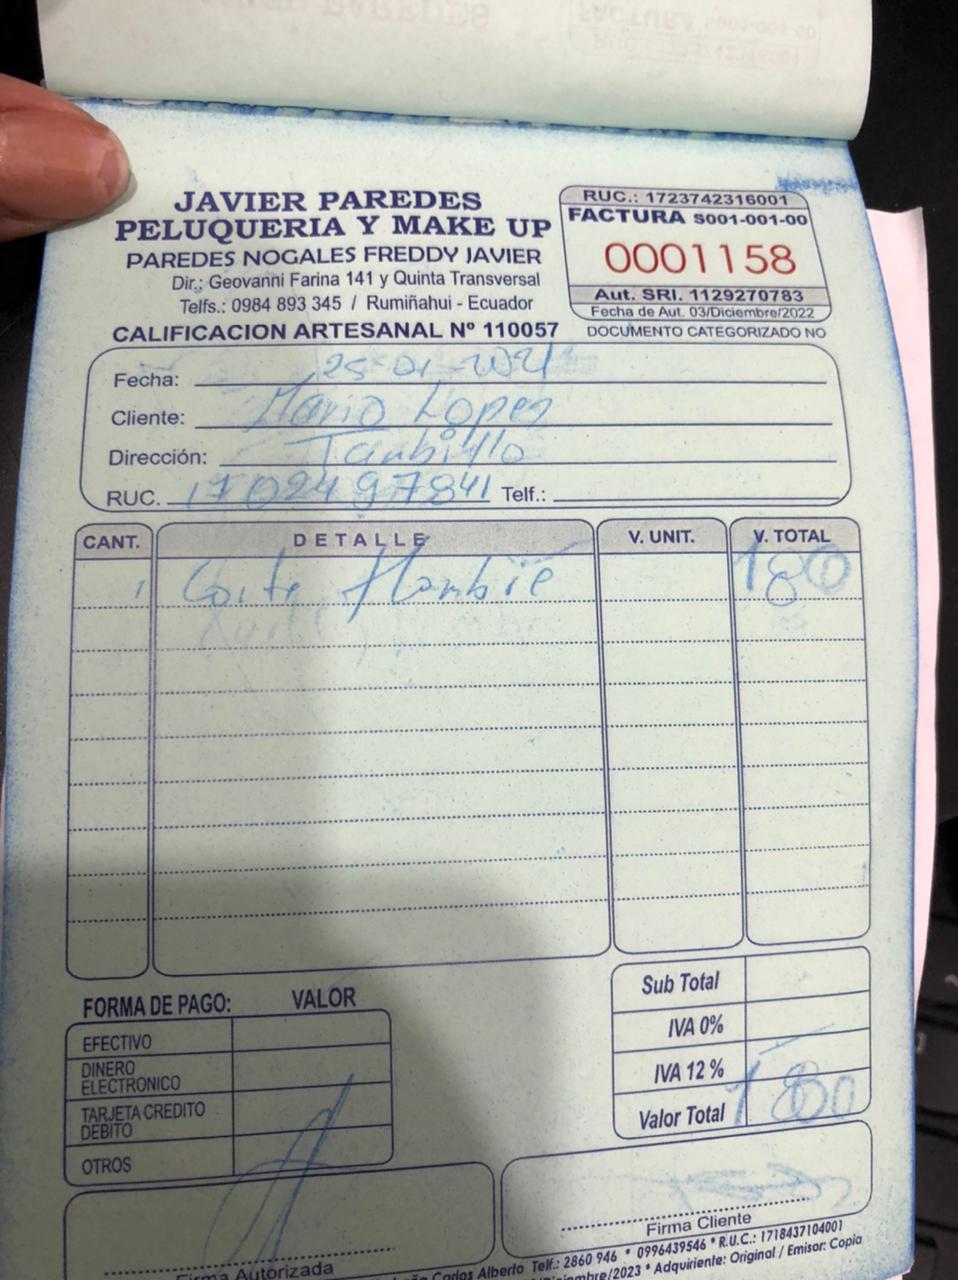 JAVIER PAREDES
PELUQUERIA Y MAKE UP
PAREDES NOGALES FREDDY JAVIER
Dir.: Geovanni Farina 141 y Quinta Transversal
Telfs.: 0984 893 345 / Rumiñahui - Ecuador
CALIFICACION ARTESANAL Nº 110057
RUC.: 1723742316001
FACTURA S001-001-00
0001158
Aut. SRI. 1129270783
Fecha de Aut. 03/Diciembre/2022
DOCUMENTO CATEGORIZADO NO
Fecha: 25-01-2021
Cliente: Mario Lopez
Dirección: Tambillo
RUC. 1702497841 Telf.:
CANT. DETALLE V. UNIT. V. TOTAL
1 Corte Hombre 180
FORMA DE PAGO: VALOR
EFECTIVO
DINERO ELECTRONICO
TARJETA CREDITO DEBITO
OTROS
Sub Total
IVA 0%
IVA 12 %
Valor Total 180
Firma Autorizada
Firma Cliente
Carlos Alberto Telf.: 2860 946 * 0996439546 * R.U.C.: 1718437104001
/2023 * Adquiriente: Original / Emisor: Copia